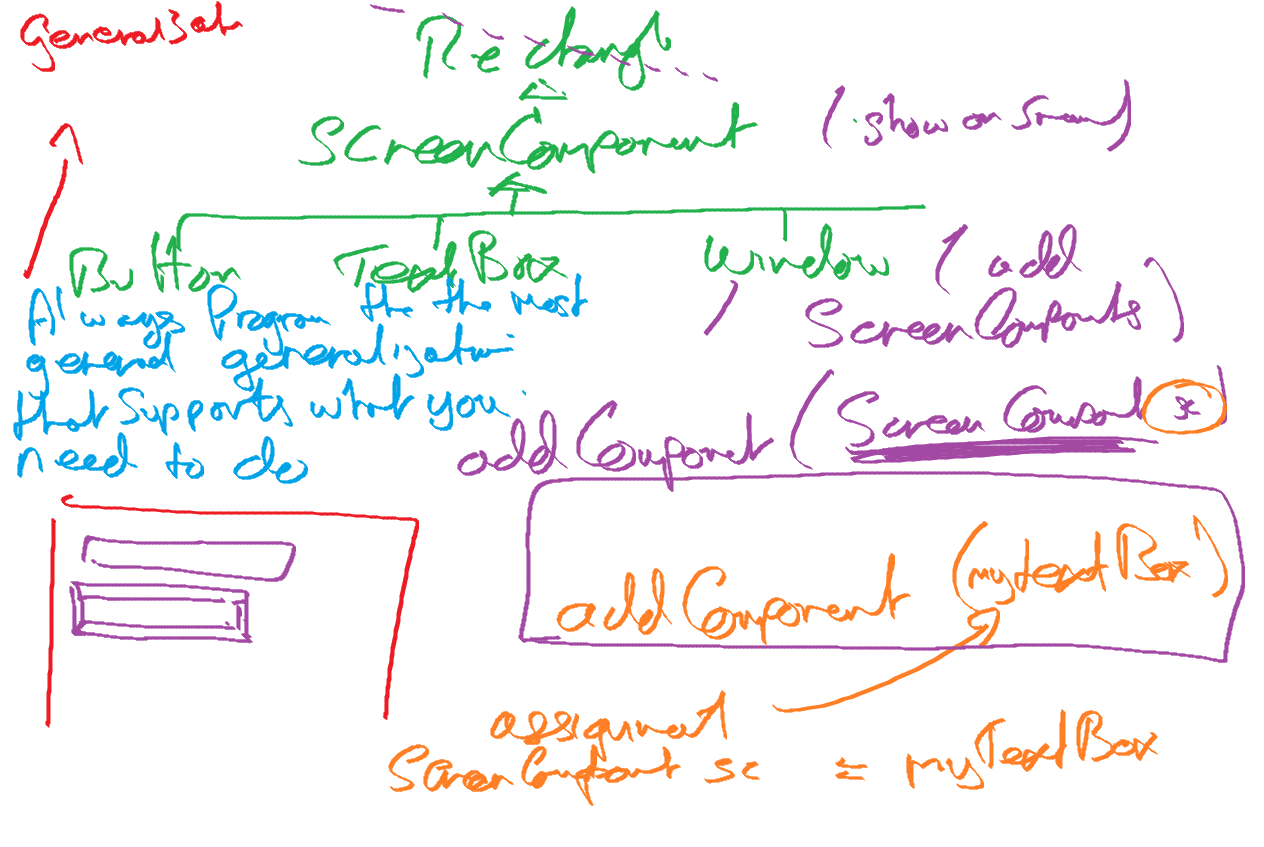 Rectangle
ScreenComponent
(show on screen)
Button TextBox Window (add
ScreenComponents)
Always Program the the most
general generalization
that supports what you
need to do
addComponent (Screen Component sc)
addComponent (mytextBox)
assignment
ScreenComponent sc = myTextBox